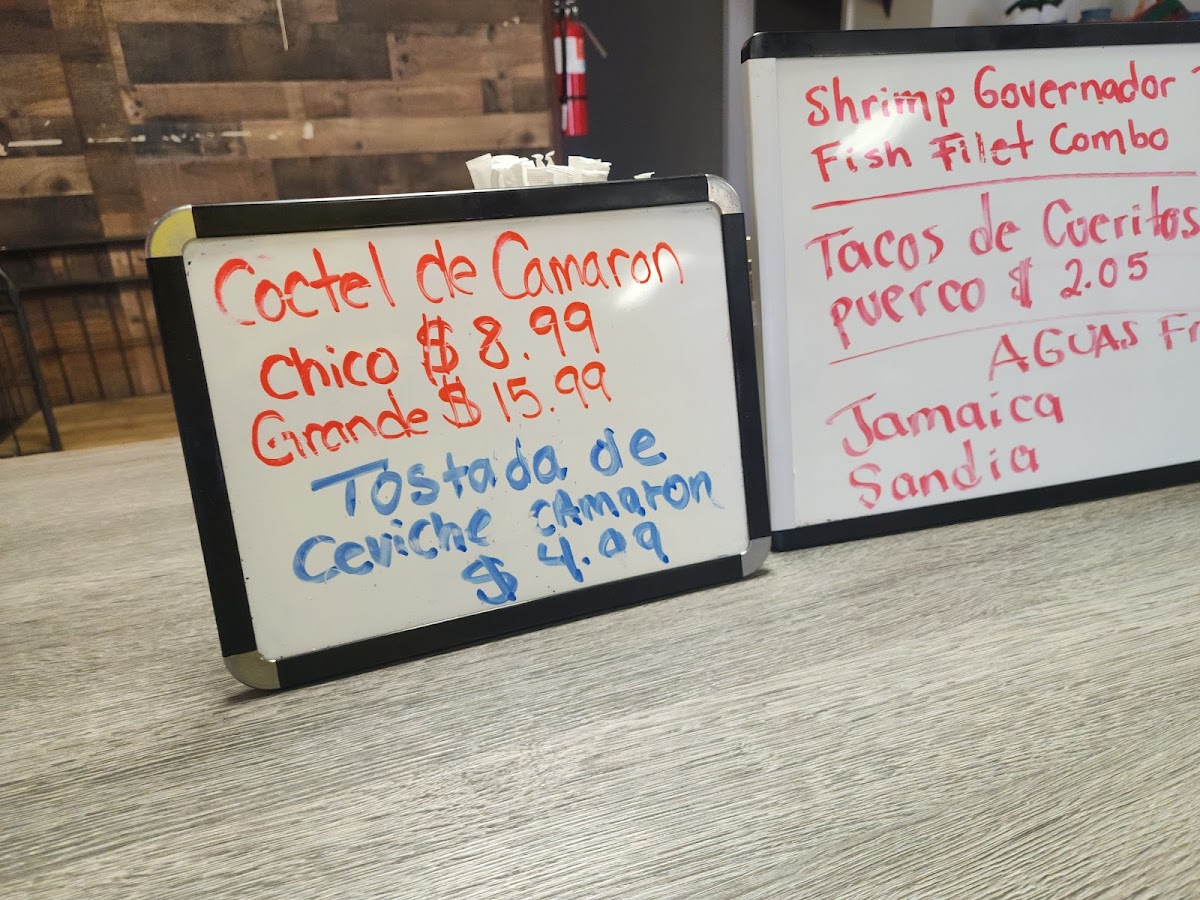 Coctel de Camaron
Chico $ 8.99
Grande $ 15.99
Tostada de
Ceviche CAMARON
$ 4.99
Shrimp Governador
Fish Filet Combo
Tacos de Cueritos
puerco $ 2.05
AGUAS
Jamaica
Sandia